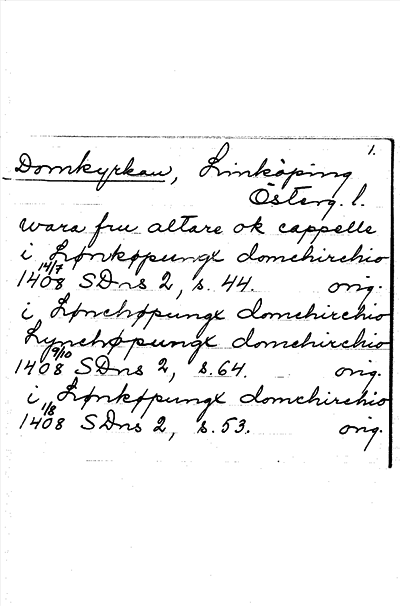 1.
Domkyrkan, Linköping
Österg. l.
wara fru altare ok cappelle
i Lønkøpungx domchirchio
14/7
1408 SDns 2, s. 44. orig.
i Lønchøpungx domchirchio
Lynchøpungx domchirchio
9/10
1408 SDns 2, s. 64. orig.
i Lønkøpungx domchirchio
1/8
1408 SDns 2, s. 53. orig.